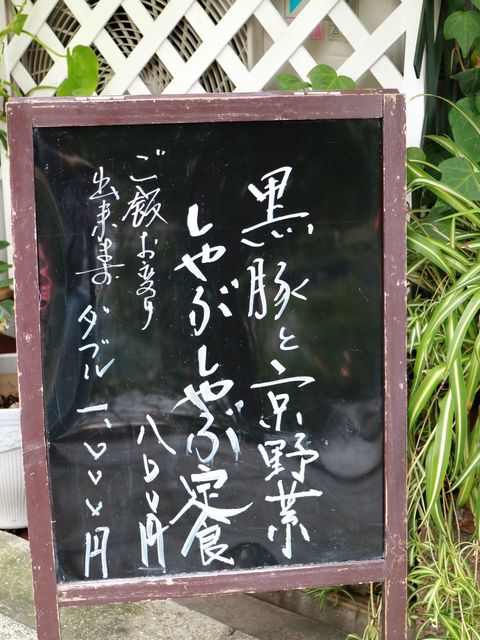 黒豚と京野菜
しゃぶしゃぶ定食
八〇〇円
ご飯お変り
出来ます ダブル 一、〇〇〇円